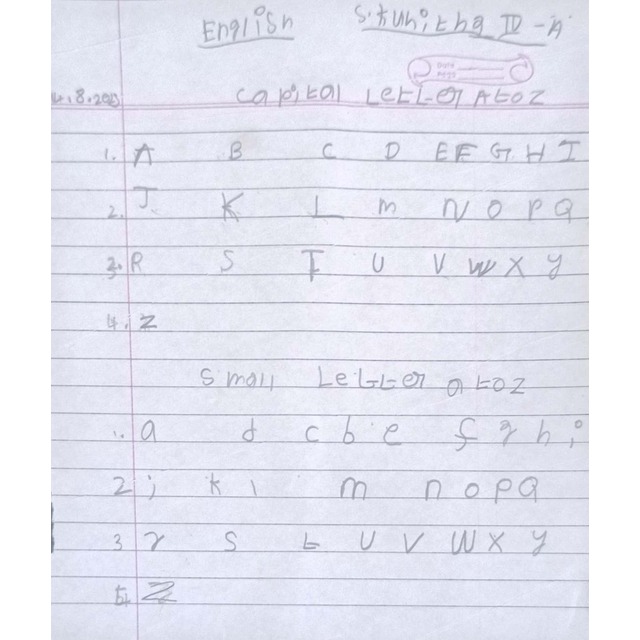 English S.tunitha IV - A
4.8.20
capital Letter A to Z
1. A B C D E F G H I
2. J K L m N O P Q
3. R S T U V W X Y
4. Z
Small Letter a to Z
1. a d c b e f g h i
2 j k l m n o p Q
3 r s t U V W X y
Z